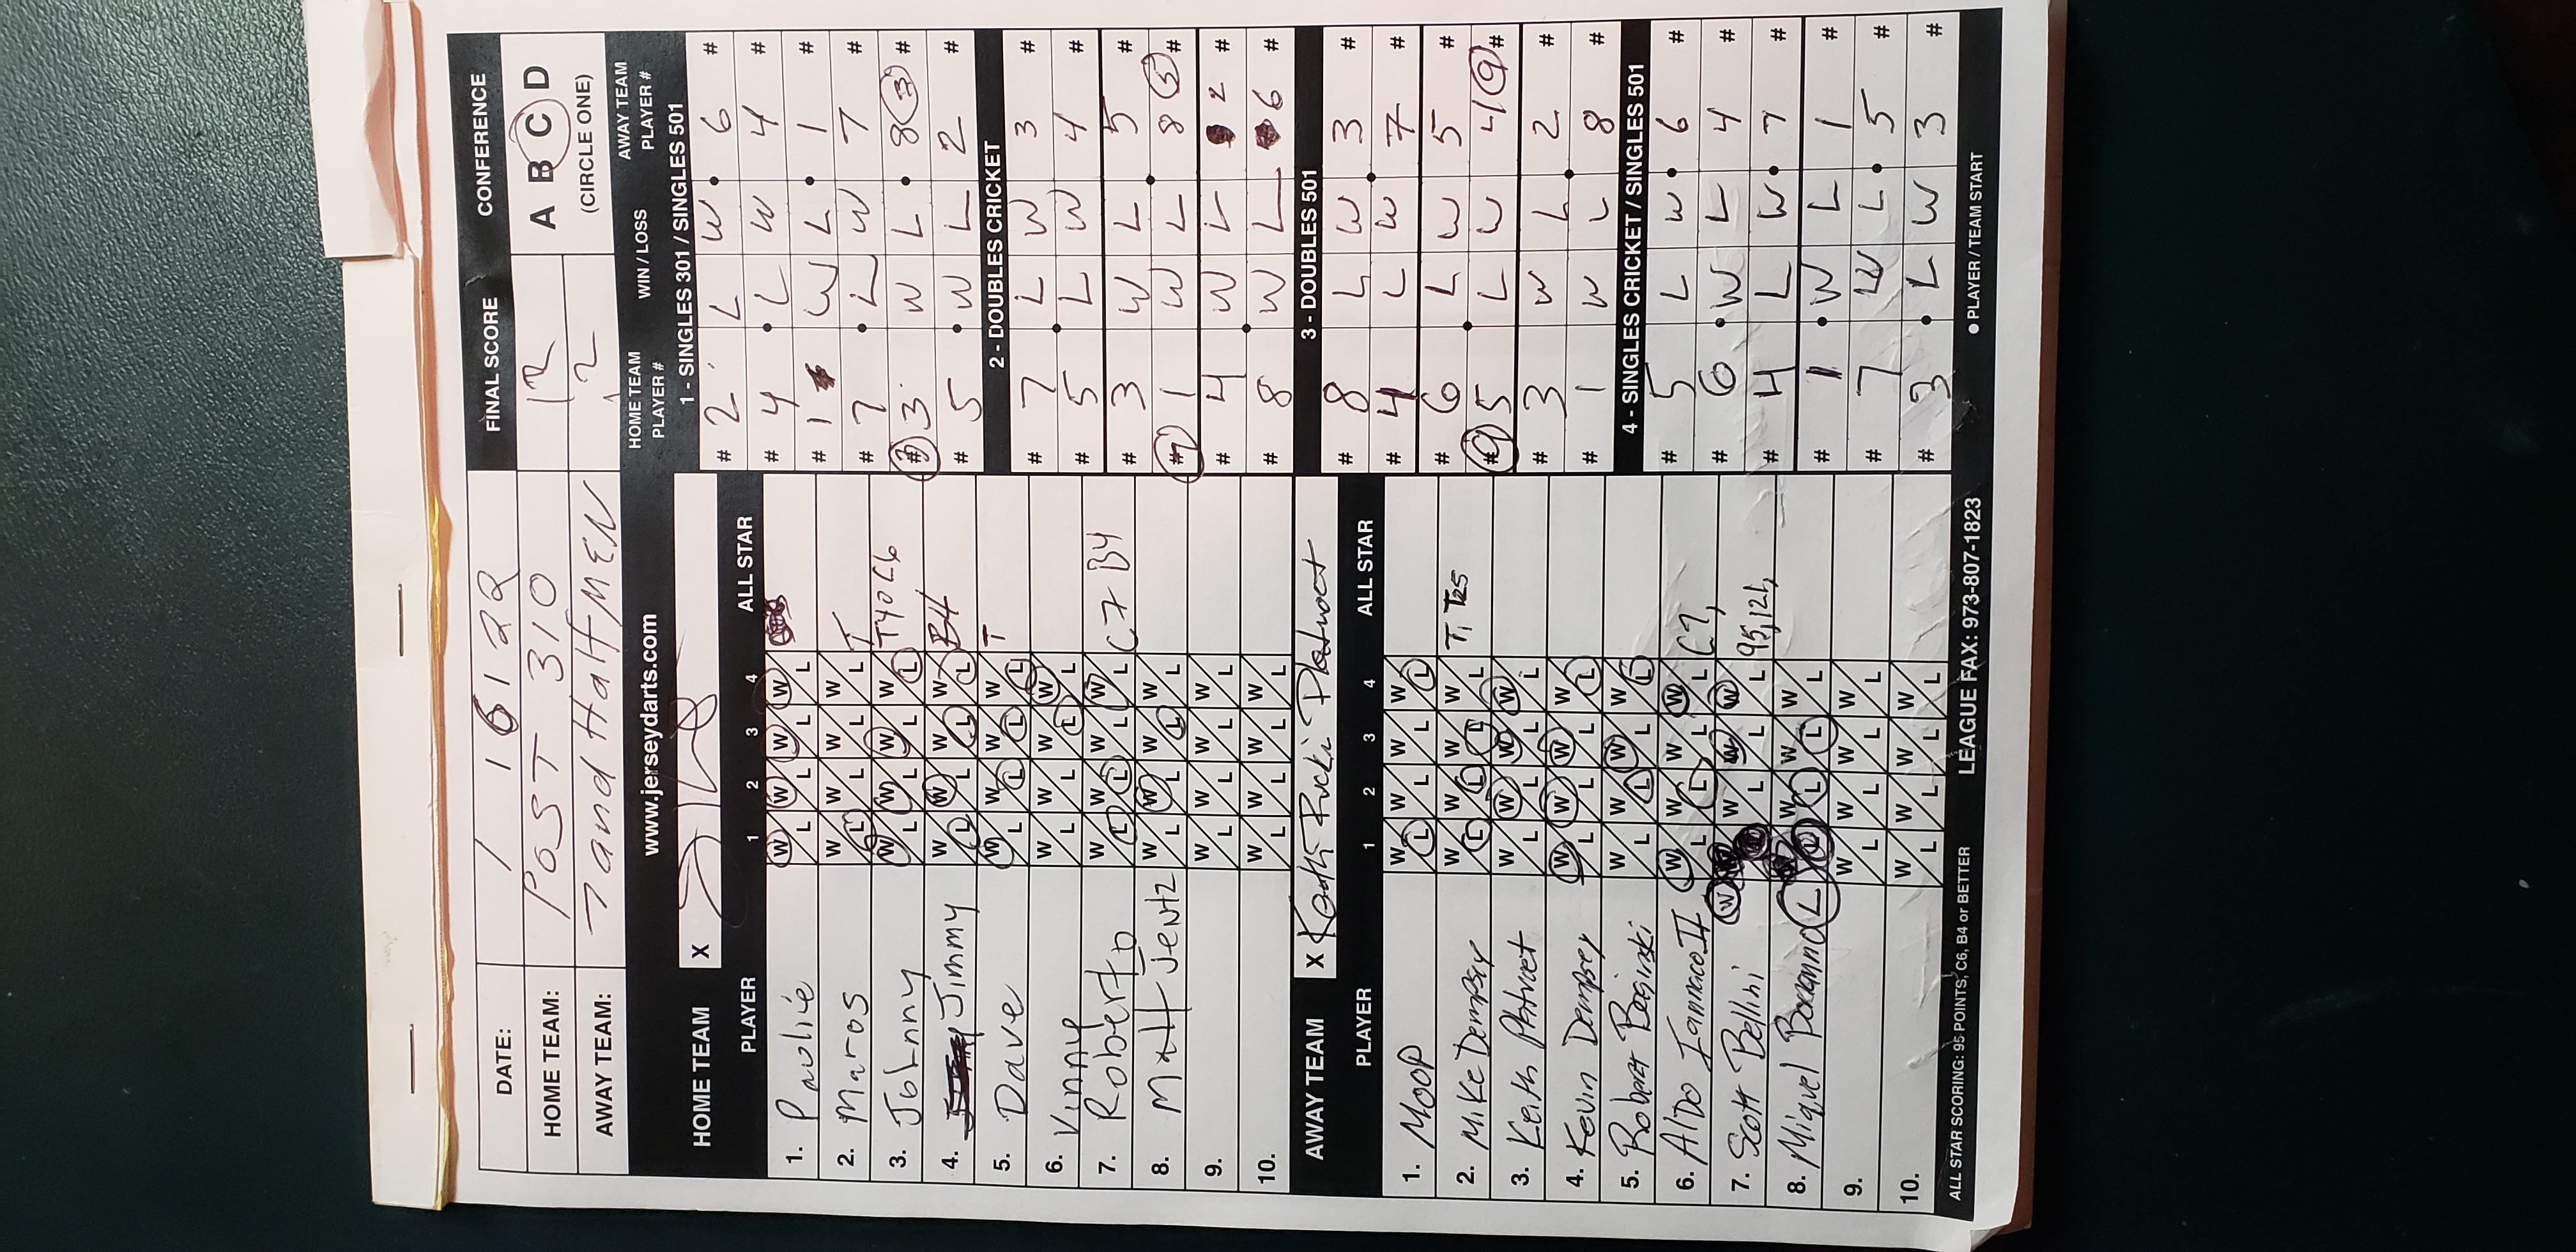 DATE: 1 / 6 / 22 FINAL SCORE CONFERENCE
HOME TEAM: POST 310 12 A B C D
AWAY TEAM: 7 and Half MEN 12 (CIRCLE ONE)
www.jerseydarts.com
HOME TEAM X
PLAYER 1 2 3 4 ALL STAR
1. Paulie W/L W/L W/L W/L
2. Maros W/L W/L W/L W/L T
3. Johnny W/L W/L W/L W/L T40 C6
4. Jimmy W/L W/L W/L W/L B4
5. Dave W/L W/L W/L W/L T
6. Vinny W/L W/L W/L W/L
7. Roberto W/L W/L W/L W/L C7 B4
8. Matt Jentz W/L W/L W/L W/L
9. W/L W/L W/L W/L
10. W/L W/L W/L W/L
AWAY TEAM X
PLAYER 1 2 3 4 ALL STAR
1. Moop W/L W/L W/L W/L
2. Mike Dempsey W/L W/L W/L W/L T, T25
3. Keith W/L W/L W/L W/L
4. Kevin Dempsey W/L W/L W/L W/L
5. Robert Beginski W/L W/L W/L W/L
6. Aldo Iannaco II W/L W/L W/L W/L C7,
7. Scott Bellini W W/L W/L W/L 95, 121,
8. Miguel L W/L W/L W/L
9. W/L W/L W/L W/L
10. W/L W/L W/L W/L
ALL STAR SCORING: 95 POINTS, C6, B4 or BETTER LEAGUE FAX: 973-807-1823
HOME TEAM PLAYER # WIN / LOSS AWAY TEAM PLAYER #
1 - SINGLES 301 / SINGLES 501
# 2 L W 6 #
# 4 • L W 4 #
# 1 W L • 1 #
# 7 • L W 7 #
# 3 W L • 8 (3) #
# 5 • W L 2 #
2 - DOUBLES CRICKET
# 7 L W 3 #
# 5 L W 4 #
# 3 W L 5 #
# 1 W L 8 (5) #
# 4 W L 2 #
# 8 W L 6 #
3 - DOUBLES 501
# 8 L W 3 #
# 4 L W 7 #
# 6 L W 5 #
# (9) 5 L W 4 (9) #
# 3 W L 2 #
# 1 W L 8 #
4 - SINGLES CRICKET / SINGLES 501
# 5 L W • 6 #
# 6 • W L 4 #
# 4 L W • 7 #
# 1 • W L 1 #
# 7 W L • 5 #
# 3 • L W 3 #
• PLAYER / TEAM START